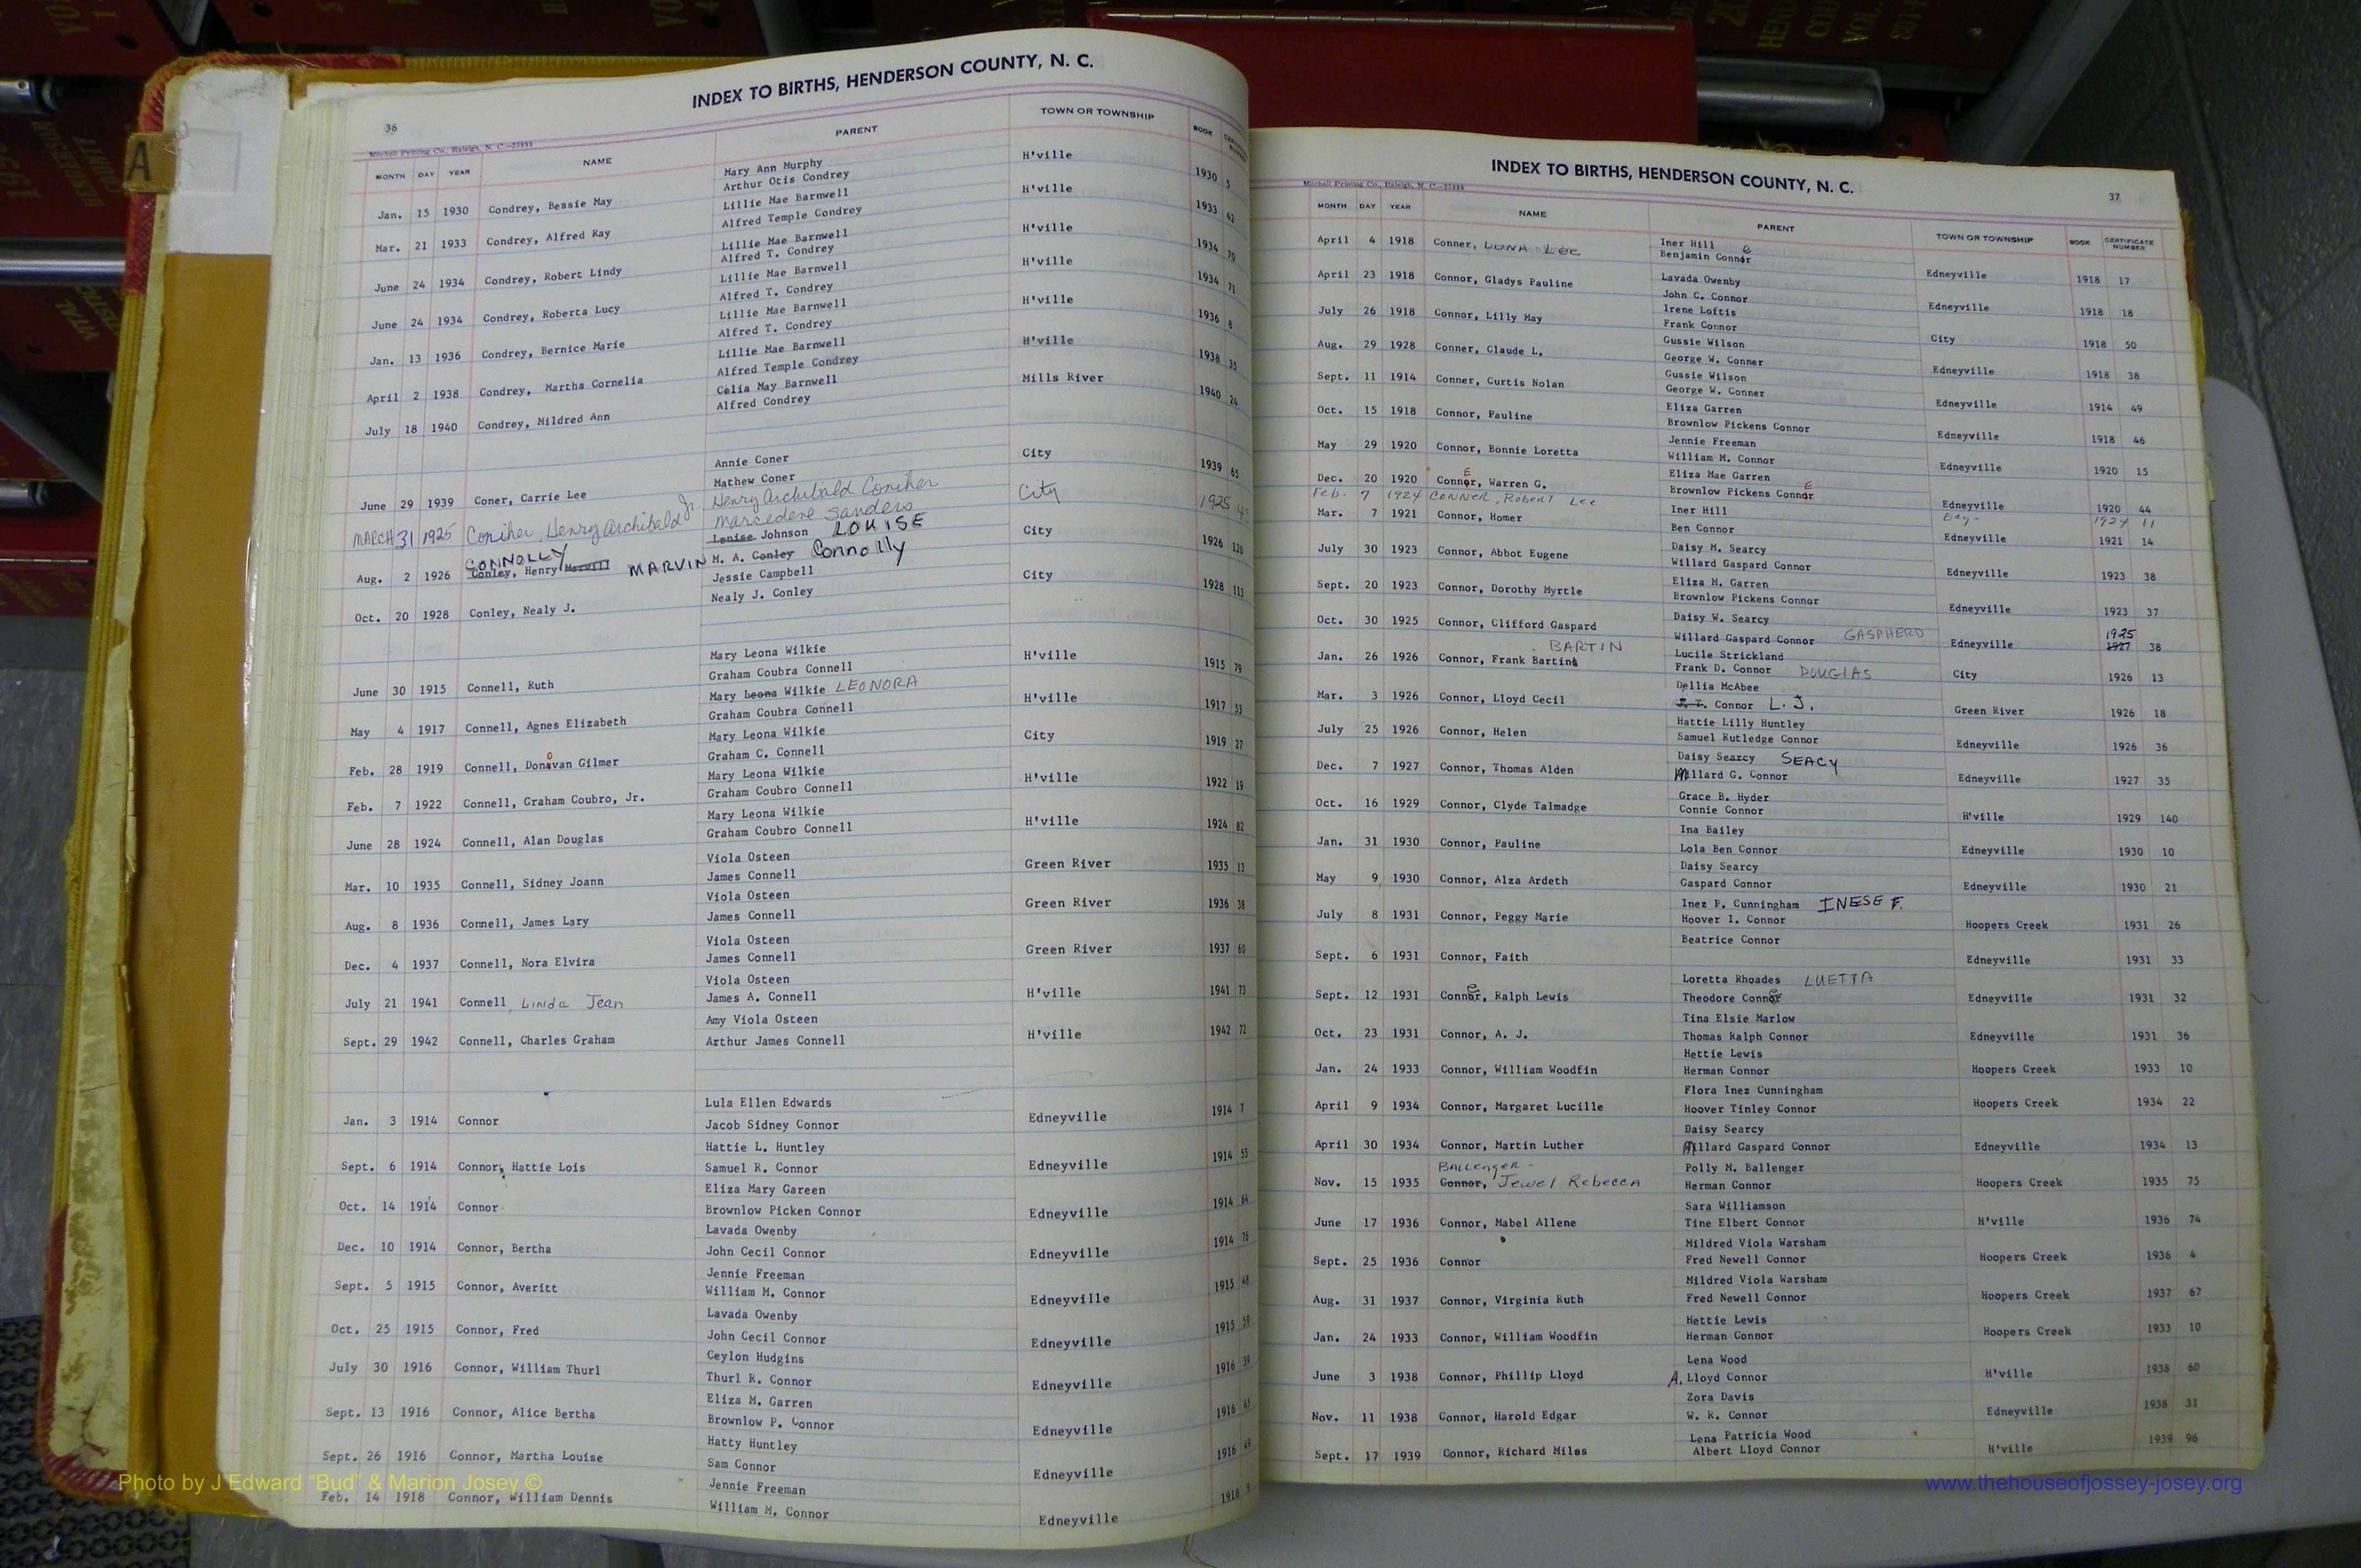 INDEX TO BIRTHS, HENDERSON COUNTY, N. C.
36
Mitchell Printing Co., Raleigh, N. C.—25888
MONTH DAY YEAR NAME PARENT TOWN OR TOWNSHIP BOOK
Mary Ann Murphy
Jan. 15 1930 Condrey, Bessie May Arthur Otis Condrey H'ville 1930 5
Lillie Mae Barnwell
Mar. 21 1933 Condrey, Alfred Ray Alfred Temple Condrey H'ville 1933 42
Lillie Mae Barnwell
June 24 1934 Condrey, Robert Lindy Alfred T. Condrey H'ville 1934 70
Lillie Mae Barnwell
June 24 1934 Condrey, Roberta Lucy Alfred T. Condrey H'ville 1934 71
Lillie Mae Barnwell
Jan. 13 1936 Condrey, Bernice Marie Alfred T. Condrey H'ville 1936 8
Lillie Mae Barnwell
April 2 1938 Condrey, Martha Cornelia Alfred Temple Condrey H'ville 1938 35
Celia May Barnwell
July 18 1940 Condrey, Mildred Ann Alfred Condrey Mills River 1940 24
Annie Coner
June 29 1939 Coner, Carrie Lee Mathew Coner City 1939 65
Henry Archibald Coniher
MARCH 31 1925 Coniher, Henry Archibald Jr. Marcedene Sanders City 1925
Louise Johnson LOUISE
CONNOLLY
Aug. 2 1926 Conley, Henry MARVIN M. A. Conley Connolly City 1926 120
Jessie Campbell
Oct. 20 1928 Conley, Nealy J. Nealy J. Conley City 1928 113
Mary Leona Wilkie
June 30 1915 Connell, Ruth Graham Coubra Connell H'ville 1915 79
Mary Leona Wilkie LEONORA
May 4 1917 Connell, Agnes Elizabeth Graham Coubra Connell H'ville 1917 53
Mary Leona Wilkie
Feb. 28 1919 Connell, Donavan Gilmer Graham C. Connell City 1919 27
Mary Leona Wilkie
Feb. 7 1922 Connell, Graham Coubro, Jr. Graham Coubro Connell H'ville 1922 19
Mary Leona Wilkie
June 28 1924 Connell, Alan Douglas Graham Coubro Connell H'ville 1924 82
Viola Osteen
Mar. 10 1935 Connell, Sidney Joann James Connell Green River 1935 13
Viola Osteen
Aug. 8 1936 Connell, James Lary James Connell Green River 1936 38
Viola Osteen
Dec. 4 1937 Connell, Nora Elvira James Connell Green River 1937 60
Viola Osteen
July 21 1941 Connell, Linda Jean James A. Connell H'ville 1941 73
Amy Viola Osteen
Sept. 29 1942 Connell, Charles Graham Arthur James Connell H'ville 1942 72
Lula Ellen Edwards
Jan. 3 1914 Connor Jacob Sidney Connor Edneyville 1914 7
Hattie L. Huntley
Sept. 6 1914 Connor, Hattie Lois Samuel R. Connor Edneyville 1914 55
Eliza Mary Gareen
Oct. 14 1914 Connor Brownlow Picken Connor Edneyville 1914 64
Lavada Owenby
Dec. 10 1914 Connor, Bertha John Cecil Connor Edneyville 1914 76
Jennie Freeman
Sept. 5 1915 Connor, Averitt William M. Connor Edneyville 1915 48
Lavada Owenby
Oct. 25 1915 Connor, Fred John Cecil Connor Edneyville 1915 59
Ceylon Hudgins
July 30 1916 Connor, William Thurl Thurl R. Connor Edneyville 1916 39
Eliza M. Garren
Sept. 13 1916 Connor, Alice Bertha Brownlow P. Connor Edneyville 1916 45
Hatty Huntley
Sept. 26 1916 Connor, Martha Louise Sam Connor Edneyville 1916 49
Jennie Freeman
Feb. 14 1918 Connor, William Dennis William M. Connor Edneyville 1918
INDEX TO BIRTHS, HENDERSON COUNTY, N. C.
37
Mitchell Printing Co., Raleigh, N. C.—25888
MONTH DAY YEAR NAME PARENT TOWN OR TOWNSHIP BOOK CERTIFICATE NUMBER
Iner Hill
April 4 1918 Conner, LONA LEE Benjamin Connor e Edneyville 1918 17
Lavada Owenby
April 23 1918 Connor, Gladys Pauline John C. Connor Edneyville 1918 18
Irene Loftis
July 26 1918 Connor, Lilly May Frank Connor City 1918 50
Gussie Wilson
Aug. 29 1928 Conner, Claude L. George W. Conner Edneyville 1918 38
Gussie Wilson
Sept. 11 1914 Conner, Curtis Nolan George W. Conner Edneyville 1914 49
Eliza Garren
Oct. 15 1918 Connor, Pauline Brownlow Pickens Connor Edneyville 1918 46
Jennie Freeman
May 29 1920 Connor, Bonnie Loretta William M. Connor Edneyville 1920 15
Eliza Mae Garren
Dec. 20 1920 Connor, Warren G. E Brownlow Pickens Connor E Edneyville 1920 44
Feb. 7 1924 CONNER, Robert Lee Edy- 1924 11
Iner Hill
Mar. 7 1921 Connor, Homer Ben Connor Edneyville 1921 14
Daisy M. Searcy
July 30 1923 Connor, Abbot Eugene Willard Gaspard Connor Edneyville 1923 38
Eliza M. Garren
Sept. 20 1923 Connor, Dorothy Myrtle Brownlow Pickens Connor Edneyville 1923 37
Daisy W. Searcy
Oct. 30 1925 Connor, Clifford Gaspard Willard Gaspard Connor GASPHERD Edneyville 1925 1927 38
BARTIN Lucile Strickland
Jan. 26 1926 Connor, Frank Bartink Frank D. Connor DOUGLAS City 1926 13
Dellia McAbee
Mar. 3 1926 Connor, Lloyd Cecil J. T. Connor L. J. Green River 1926 18
Hattie Lilly Huntley
July 25 1926 Connor, Helen Samuel Rutledge Connor Edneyville 1926 36
Daisy Searcy SEACY
Dec. 7 1927 Connor, Thomas Alden Millard G. Connor Edneyville 1927 35
Grace B. Hyder
Oct. 16 1929 Connor, Clyde Talmadge Connie Connor H'ville 1929 140
Ina Bailey
Jan. 31 1930 Connor, Pauline Lola Ben Connor Edneyville 1930 10
Daisy Searcy
May 9 1930 Connor, Alza Ardeth Gaspard Connor Edneyville 1930 21
Inez P. Cunningham INESE F.
July 8 1931 Connor, Peggy Marie Hoover I. Connor Hoopers Creek 1931 26
Beatrice Connor
Sept. 6 1931 Connor, Faith Edneyville 1931 33
Loretta Rhoades LUETTA
Sept. 12 1931 Conner, Ralph Lewis Theodore Conner Edneyville 1931 32
Tina Elsie Marlow
Oct. 23 1931 Connor, A. J. Thomas Ralph Connor Edneyville 1931 36
Hettie Lewis
Jan. 24 1933 Connor, William Woodfin Herman Connor Hoopers Creek 1933 10
Flora Inez Cunningham
April 9 1934 Connor, Margaret Lucille Hoover Tinley Connor Hoopers Creek 1934 22
Daisy Searcy
April 30 1934 Connor, Martin Luther Millard Gaspard Connor Edneyville 1934 13
Ballenger- Polly M. Ballenger
Nov. 15 1935 Connor, Jewel Rebecca Herman Connor Hoopers Creek 1935 75
Sara Williamson
June 17 1936 Connor, Mabel Allene Tine Elbert Connor H'ville 1936 74
Mildred Viola Warsham
Sept. 25 1936 Connor Fred Newell Connor Hoopers Creek 1936 4
Mildred Viola Warsham
Aug. 31 1937 Connor, Virginia Ruth Fred Newell Connor Hoopers Creek 1937 67
Hettie Lewis
Jan. 24 1933 Connor, William Woodfin Herman Connor Hoopers Creek 1933 10
Lena Wood
June 3 1938 Connor, Phillip Lloyd A. Lloyd Connor H'ville 1938 60
Zora Davis
Nov. 11 1938 Connor, Harold Edgar W. R. Connor Edneyville 1938 31
Lena Patricia Wood
Sept. 17 1939 Connor, Richard Miles Albert Lloyd Connor H'ville 1939 96
Photo by J Edward "Bud" & Marion Josey ©
www.thehouseofjossey-josey.org